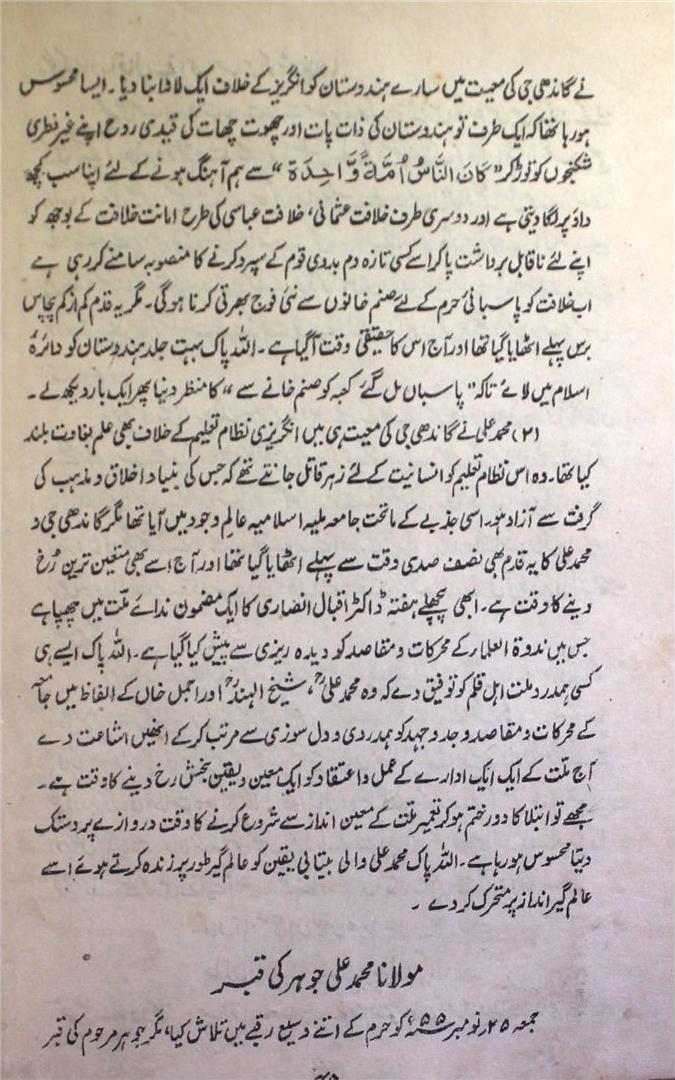 نے گاندھی جی کی معیت میں سارے ہندوستان کو انگریز کے خلاف ایک لاوا بنا دیا۔ ایسا محسوس
ہو رہا تھا کہ ایک طرف تو ہندوستان کی ذات پات اور چھوت چھات کی قیدی روح اپنے غیر فطری
شکنجوں کو توڑ کر ”كَانَ النَّاسُ اُمَّةً وَّاحِدَة“ سے ہم آہنگ ہونے کے لئے اپنا سب کچھ
داؤ پر لگا دیتی ہے اور دوسری طرف خلافت عثمانی، خلافت عباسی کی طرح امانت خلافت کے بوجھ کو
اپنے لئے ناقابل برداشت پا کر اسے کسی تازہ دم بدوی قوم کے سپرد کرنے کا منصوبہ سامنے کر رہی ہے
اب خلافت کو پاسبانیٔ حرم کے لئے صنم خانوں سے نئی فوج بھرتی کرنا ہوگی۔ مگر یہ قدم کم از کم پچاس
برس پہلے اٹھایا گیا تھا اور آج اس کا حقیقی وقت آ گیا ہے۔ اللہ پاک بہت جلد ہندوستان کو دائرۂ
اسلام میں لائے تاکہ ”پاسباں مل گئے کعبہ کو صنم خانے سے“ کا منظر دنیا پھر ایک بار دیکھ لے۔
(۲) محمد علی نے گاندھی جی کی معیت ہی میں انگریزی نظام تعلیم کے خلاف بھی علم بغاوت بلند
کیا تھا۔ وہ اس نظام تعلیم کو انسانیت کے لئے زہر قاتل جانتے تھے کہ جس کی بنیاد اخلاق و مذہب کی
گرفت سے آزاد ہو، اسی جذبے کے ماتحت جامعہ ملیہ اسلامیہ عالم وجود میں آیا تھا مگر گاندھی جی و
محمد علی کا یہ قدم بھی نصف صدی وقت سے پہلے اٹھایا گیا تھا اور آج اسے بھی متعین ترین رُخ
دینے کا وقت ہے۔ ابھی پچھلے ہفتہ ڈاکٹر اقبال انصاری کا ایک مضمون ندائے ملّت میں چھپا ہے
جس میں ندوۃ العلماء کے محرکات و مقاصد کو دیدہ ریزی سے پیش کیا گیا ہے۔ اللہ پاک ایسے ہی
کسی ہمدرد ملت اہل قلم کو توفیق دے کہ وہ محمد علیؒ، شیخ الہندؒ اور اجمل خاں کے الفاظ میں جامعہ
کے محرکات و مقاصد و جد و جہد کو ہمدردی و دل سوزی سے مرتب کر کے انھیں اشاعت دے
آج ملّت کے ایک ایک ادارے کے عمل و اعتقاد کو ایک معین و یقین بخش رخ دینے کا وقت ہے۔
مجھے تو ابتلا کا دور ختم ہو کر تعمیر ملّت کے معین انداز سے شروع کرنے کا وقت دروازے پر دستک
دیتا محسوس ہو رہا ہے۔ اللہ پاک محمد علی والی بیتابیٔ یقین کو عالم گیر طور پر زندہ کرتے ہوئے اسے
عالم گیر انداز پر متحرک کر دے۔
مولانا محمد علی جوہر کی قبر
جمعہ ۲۵ نومبر ۵۵ء کو حرم کے اتنے وسیع رقبے میں تلاش کیا، مگر جوہر مرحوم کی قبر